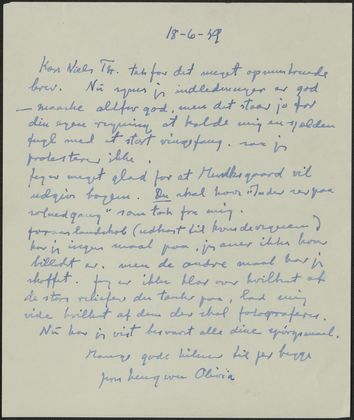 18-6-49
Kære Niels Th. tak for det meget opmuntrende
brev. Nu synes jeg indledningen er god
– maaske altfor god, men det staar jo for
din egen regning at kalde mig en sjelden
fugl med et stort vingefang. saa jeg
protesterer ikke.
Jeg er meget glad for at Munksgaard vil
udgive bogen. Du skal have "Inder ser paa
solnedgang" som tak fra mig.
(udkast til
har jeg ingen maal paa, jeg aner ikke hvor
billedet er. men de andre maal har jeg
skaffet. Jeg er ikke klar over hvilket af
de store relieffer du tænker paa, lad mig
vide hvilket af dem der skal fotograferes.
Nu har jeg vist besvaret alle dine spørgsmaal.
Mange gode hilsner til jer begge
Jens Olivia